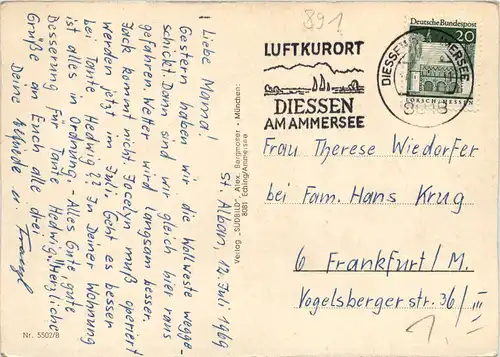 891
LUFTKURORT
DIESSEN
AM AMMERSEE
Deutsche Bundespost
20
LORSCH/HESSEN
Frau Therese Wiedorfer
bei Fam. Hans Krug
6 Frankfurt/M.
Vogelsberger str. 36/III
St. Alban, 12. Juli 1969
Liebe Mama!
Gestern haben wir die Wollweste wegge-
schickt. Dann sind wir gleich hier raus
gefahren. Wetter wird langsam besser.
Jack kommt nicht. Jocelyn muß operiert
werden jetzt im Juli. Geht es besser
bei Tante Hedwig?? In Deiner Wohnung
ist alles in Ordnung. - Alles Gute gute
Besserung für Tante Hedwig. Herzliche
Grüße an Euch alle drei
Deine u. Franzl
Verlag "SÜDBILD", Alex. Bergmoser - München:
8081 Eching/Ammersee
Nr. 5502/8